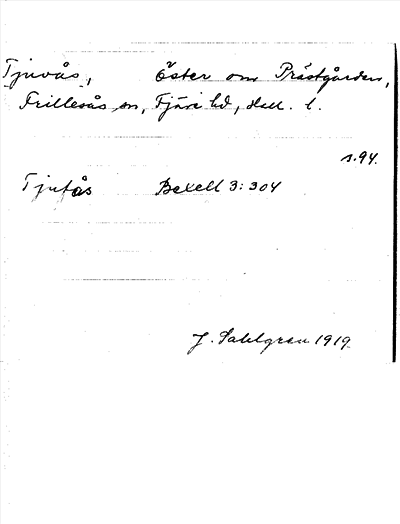 Tjuvås, Öster om Prästgården,
Frillesås sn, Fjäre hd, Hall. l.
s. 94.
Tjufås Bexell 3: 304
J. Sahlgren 1919